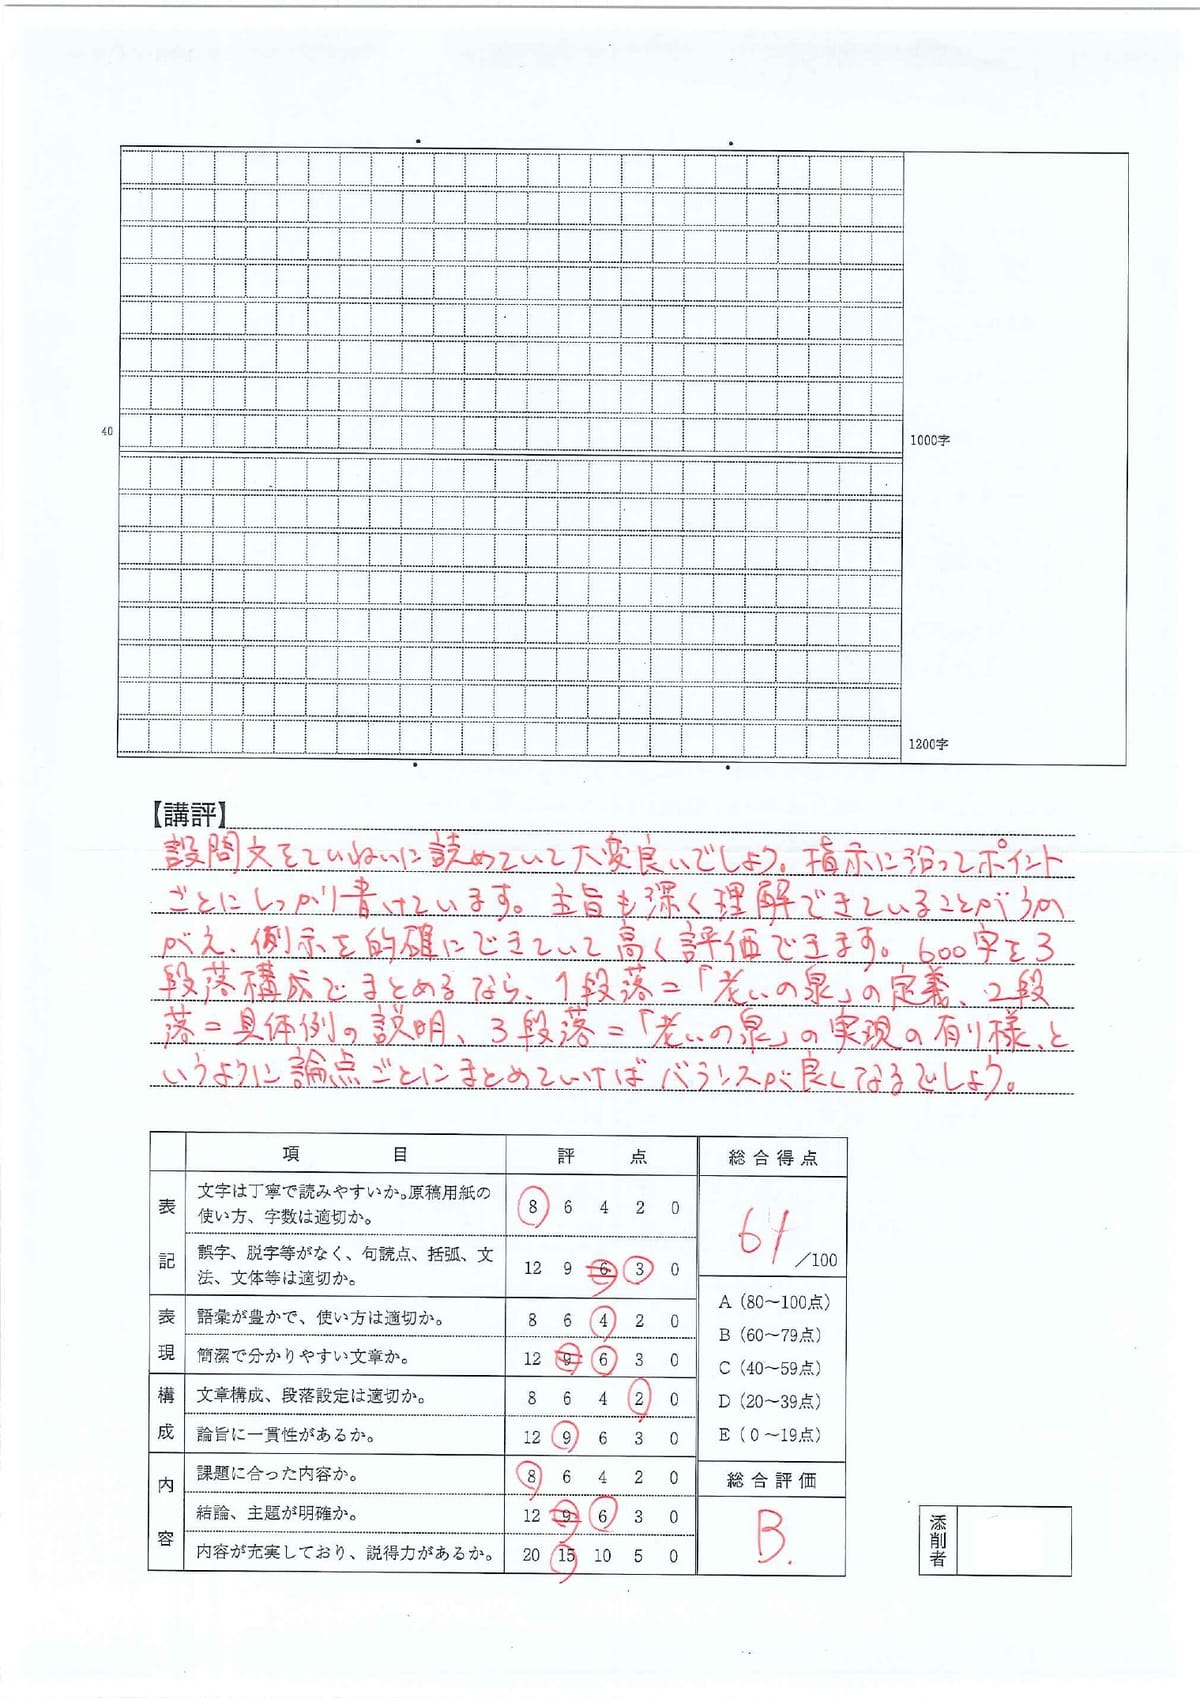 40
1000字
1200字
【講評】
設問文をていねいに読めていて大変良いでしょう。指示に沿ってポイント
ごとにしっかり書けています。主旨も深く理解できていることがうか
がえ、例示を的確にできていて高く評価できます。600字を3
段落構成でまとめるなら、1段落=「老いの泉」の定義、2段
落=具体例の説明、3段落=「老いの泉」の実現の有り様、と
いうように論点ごとにまとめていけばバランスが良くなるでしょう。
項目 評点 総合得点
表記
文字は丁寧で読みやすいか。原稿用紙の
使い方、字数は適切か。
8 6 4 2 0
誤字、脱字等がなく、句読点、括弧、文
法、文体等は適切か。
12 9 6 3 0
64/100
表現
語彙が豊かで、使い方は適切か。 8 6 4 2 0
簡潔で分かりやすい文章か。 12 9 6 3 0
構成
文章構成、段落設定は適切か。 8 6 4 2 0
論旨に一貫性があるか。 12 9 6 3 0
A(80~100点)
B(60~79点)
C(40~59点)
D(20~39点)
E(0~19点)
内容
課題に合った内容か。 8 6 4 2 0
結論、主題が明確か。 12 9 6 3 0
内容が充実しており、説得力があるか。 20 15 10 5 0
総合評価
B.
添削者